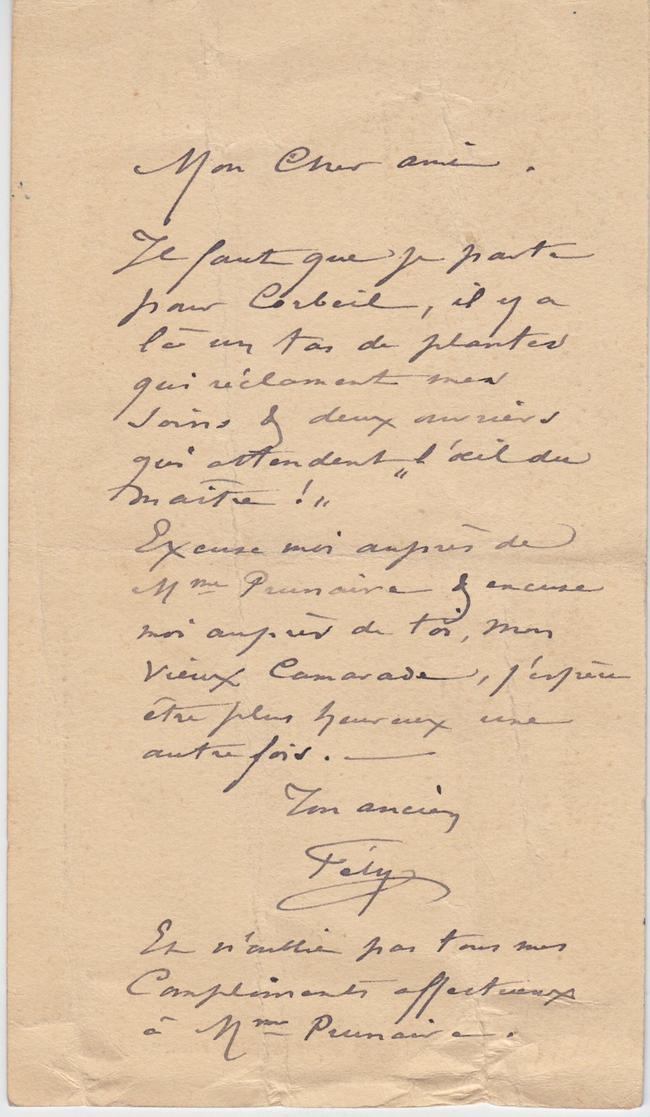 Mon Cher ami .
Il faut que je parte
pour Corbeil, il y a
là un tas de plantes
qui réclament mes
soins & deux ouvriers
qui attendent "l'œil du
maître !"
Excuse moi auprès de
Mme Prunaire & excuse
moi auprès de toi, mon
vieux Camarade, j'espère
être plus heureux une
autre fois. —
Ton ancien
Fély
Et n'oublie pas tous mes
Compliments affectueux
à Mme Prunaire.